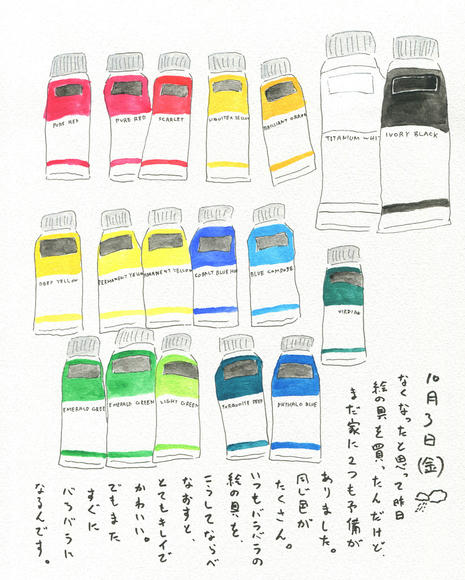 PURE RED
PURE RED
SCARLET
TITANIUM WHIT
IVORY BLACK
DEEP YELLOW
PERMANENT YELLOW
COBALT BLUE HU
BLUE COMPOSE
VIRDIAN
EMERALD GREE
EMERALD GREEN
LIGHT GREEN
TURQUOISE DEEP
PHTHALO BLUE
10月3日(金)
なくなったと思って昨日
絵の具を買ったんだけど、
まだ家に2つも予備が
ありました。
同じ色が
たくさん。
いつもバラバラの
絵の具を、
こうしてならべ
なおすと、
とてもキレイで
かわいい。
でもまた
すぐに
バラバラに
なるんです。